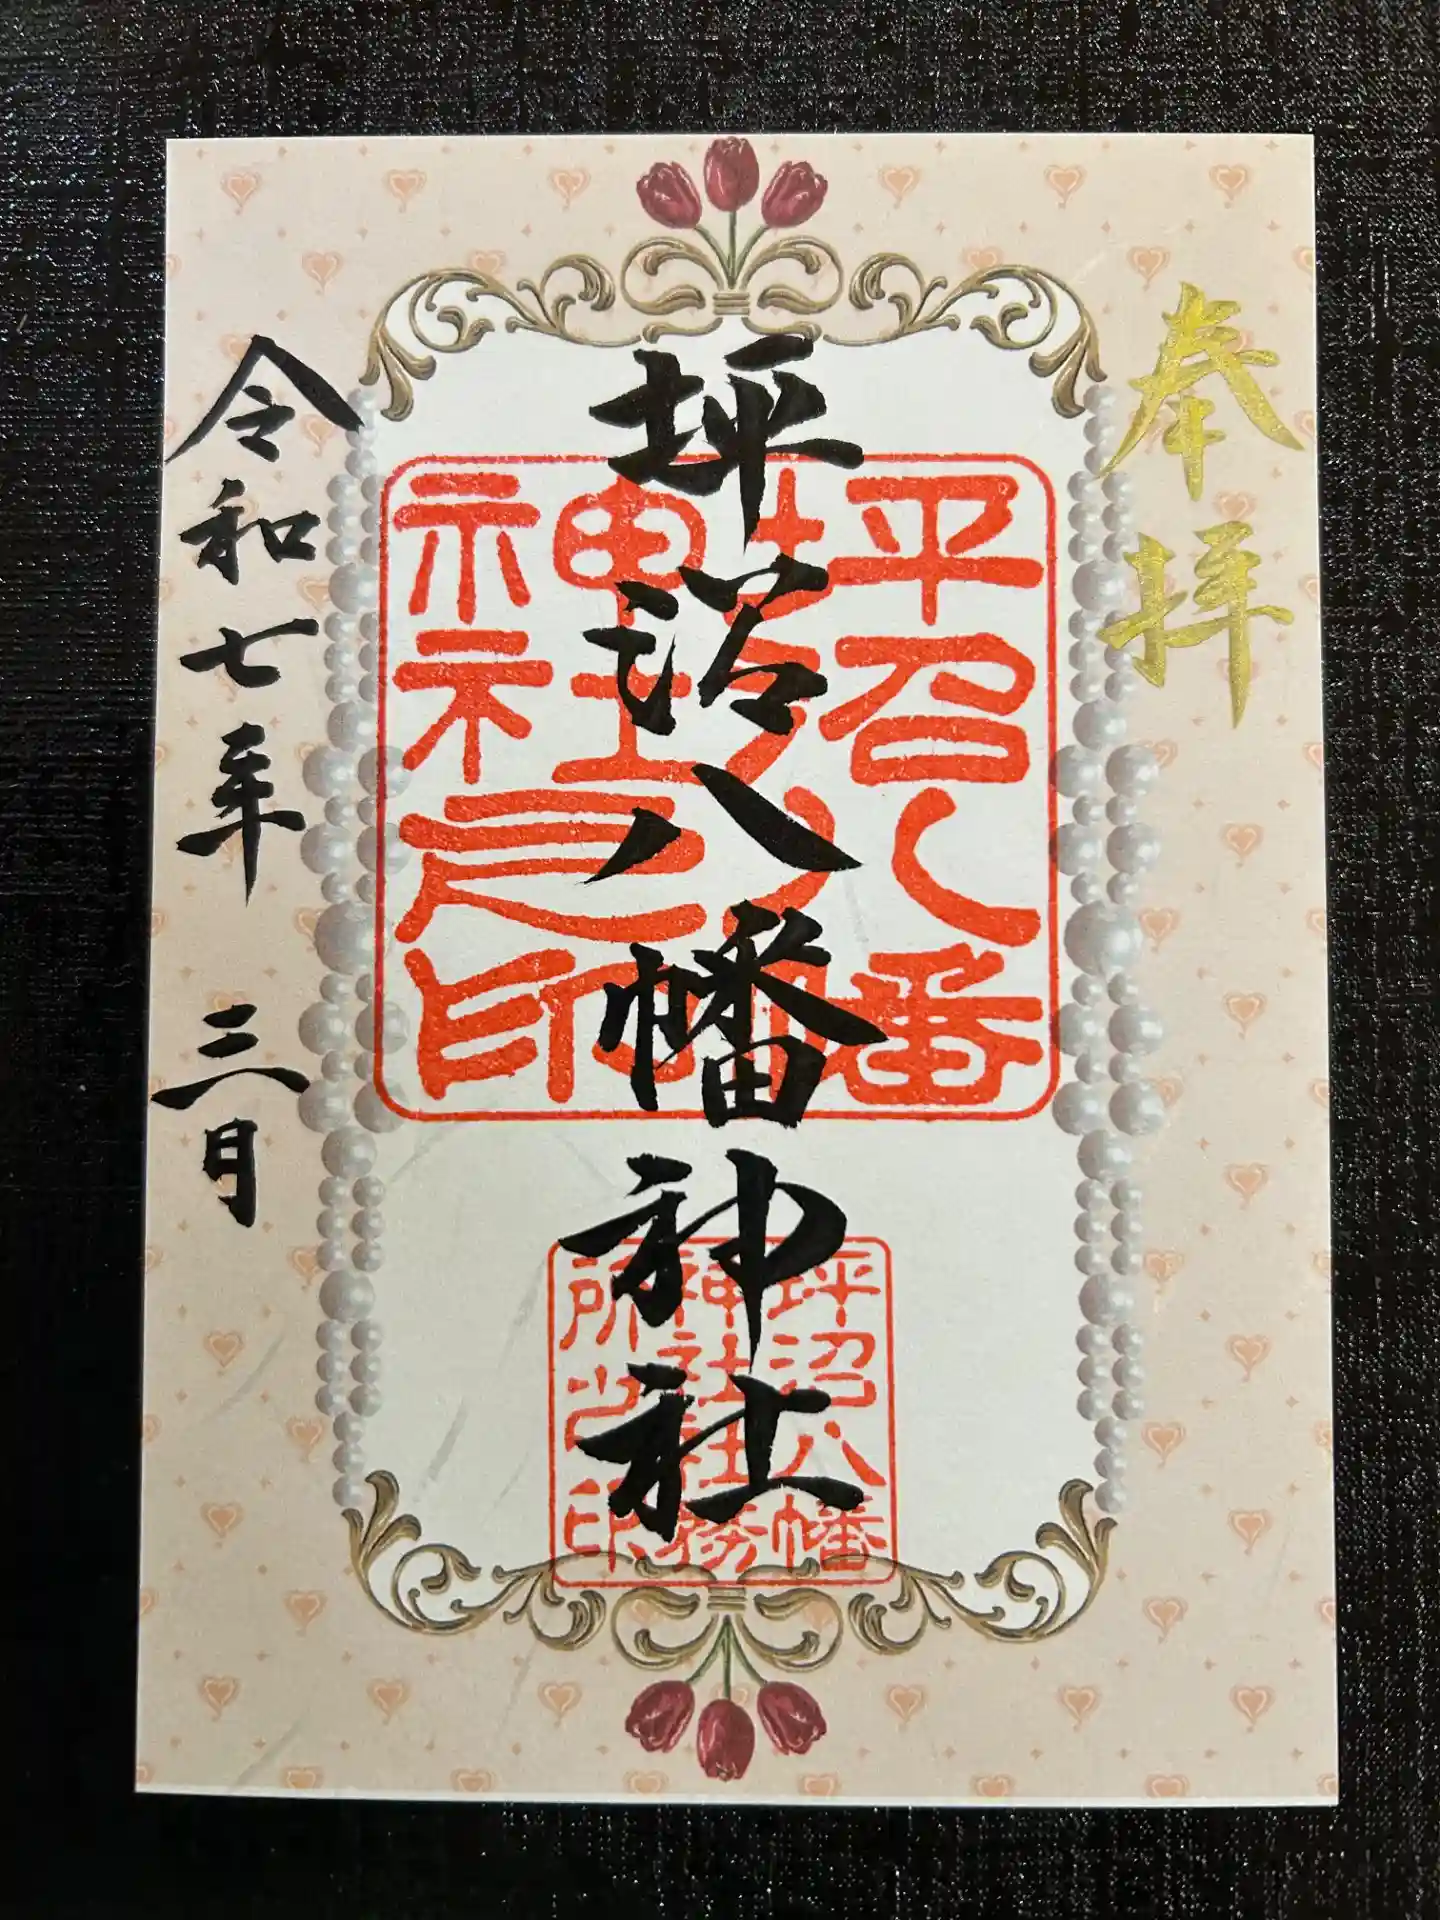 奉拝
坪沼八幡神社
坪沼八幡
神社之印
坪沼八幡
神社社務
所之印
令和七年 三月